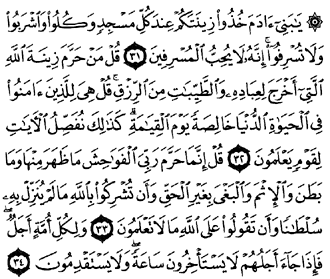 ۞ يَٰبَنِىٓ ءَادَمَ خُذُوا۟ زِينَتَكُمْ عِندَ كُلِّ مَسْجِدٍ وَكُلُوا۟ وَٱشْرَبُوا۟
وَلَا تُسْرِفُوٓا۟ ۚ إِنَّهُۥ لَا يُحِبُّ ٱلْمُسْرِفِينَ ٣١ قُلْ مَنْ حَرَّمَ زِينَةَ ٱللَّهِ
ٱلَّتِىٓ أَخْرَجَ لِعِبَادِهِۦ وَٱلطَّيِّبَٰتِ مِنَ ٱلرِّزْقِ ۚ قُلْ هِىَ لِلَّذِينَ ءَامَنُوا۟
فِى ٱلْحَيَوٰةِ ٱلدُّنْيَا خَالِصَةً يَوْمَ ٱلْقِيَٰمَةِ ۗ كَذَٰلِكَ نُفَصِّلُ ٱلْءَايَٰتِ
لِقَوْمٍ يَعْلَمُونَ ٣٢ قُلْ إِنَّمَا حَرَّمَ رَبِّىَ ٱلْفَوَٰحِشَ مَا ظَهَرَ مِنْهَا وَمَا
بَطَنَ وَٱلْإِثْمَ وَٱلْبَغْىَ بِغَيْرِ ٱلْحَقِّ وَأَن تُشْرِكُوا۟ بِٱللَّهِ مَا لَمْ يُنَزِّلْ بِهِۦ
سُلْطَٰنًا وَأَن تَقُولُوا۟ عَلَى ٱللَّهِ مَا لَا تَعْلَمُونَ ٣٣ وَلِكُلِّ أُمَّةٍ أَجَلٌ ۖ
فَإِذَا جَآءَ أَجَلُهُمْ لَا يَسْتَأْخِرُونَ سَاعَةً ۖ وَلَا يَسْتَقْدِمُونَ ٣٤